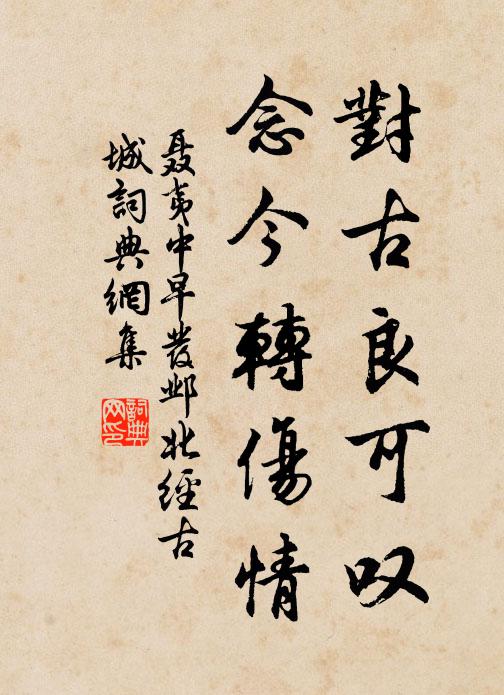 對古良可叹
念今轉傷情
聶夷中早發邺北經古
城詞典網集
詞典
网印